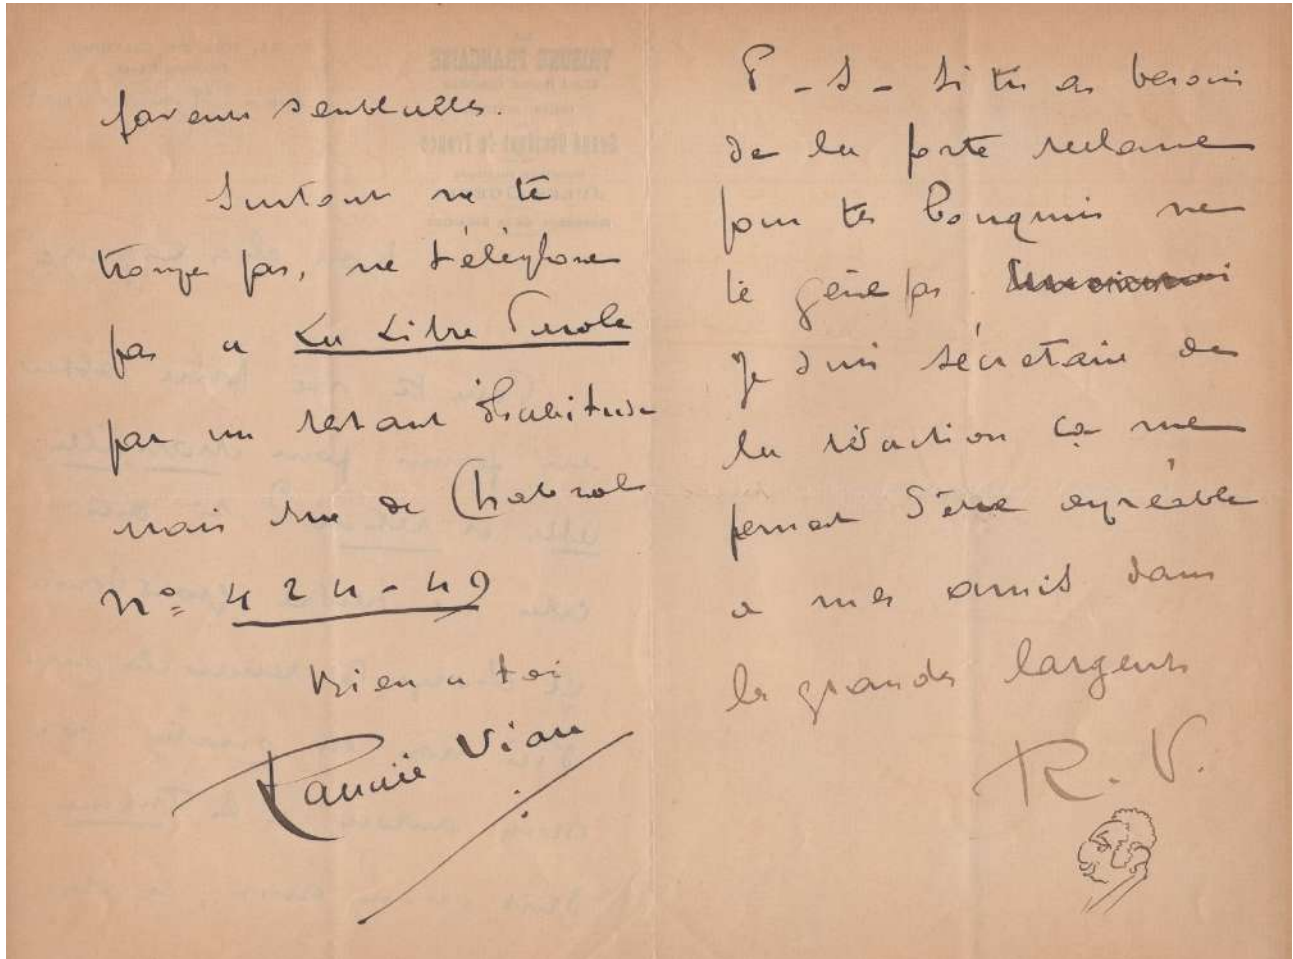 faveurs semblables.
Surtout ne te
trompe pas, ne téléphone
pas a La Libre Parole
par un restant d'habitude
mais rue de Chabrol
N° 424-49
Bien a toi
Viau
P-S- Si tu as besoin
de la forte reclame
pour tes bouquins ne
te gêne pas.
Je suis sécretaire de
la rédaction ça me
permet d'être agréable
a mes amis dans
les grandes largeurs
R. V.
TRIBUNE FRANÇAISE